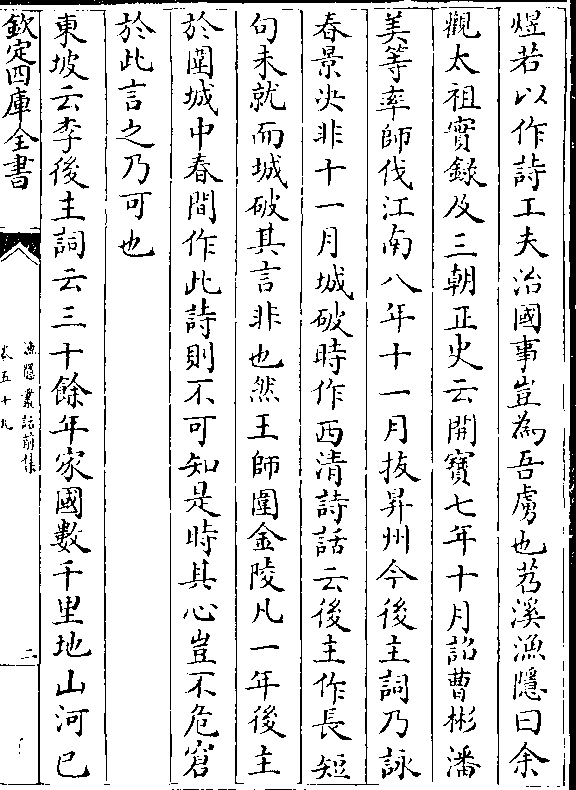 煜若以作詩工夫治國事豈為吾虜也苕溪漁隱曰余
觀太祖實錄及三朝正史云開寶七年十月詔曹彬潘
美等率師伐江南八年十一月拔昇州今後主詞乃詠
春景決非十一月城破時作西清詩話云後主作長短
句未就而城破其言非也然王師圍金陵凡一年後主
於圍城中春間作此詩則不可知是時其心豈不危窘
於此言之乃可也
東坡云李後主詞云三十餘年家國數千里地山河已
欽定四庫全書
漁隱叢話前集
卷五十九
二